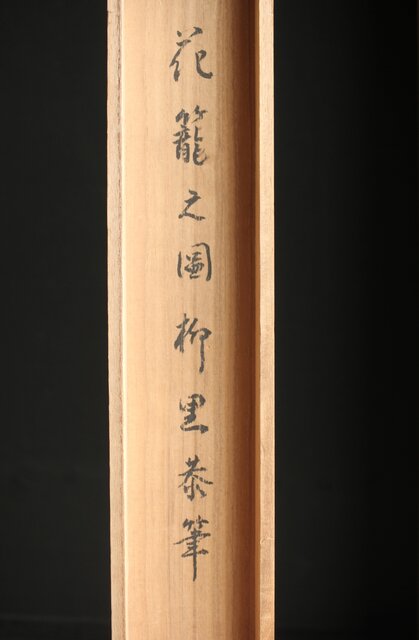 花籠之圖柳里恭筆